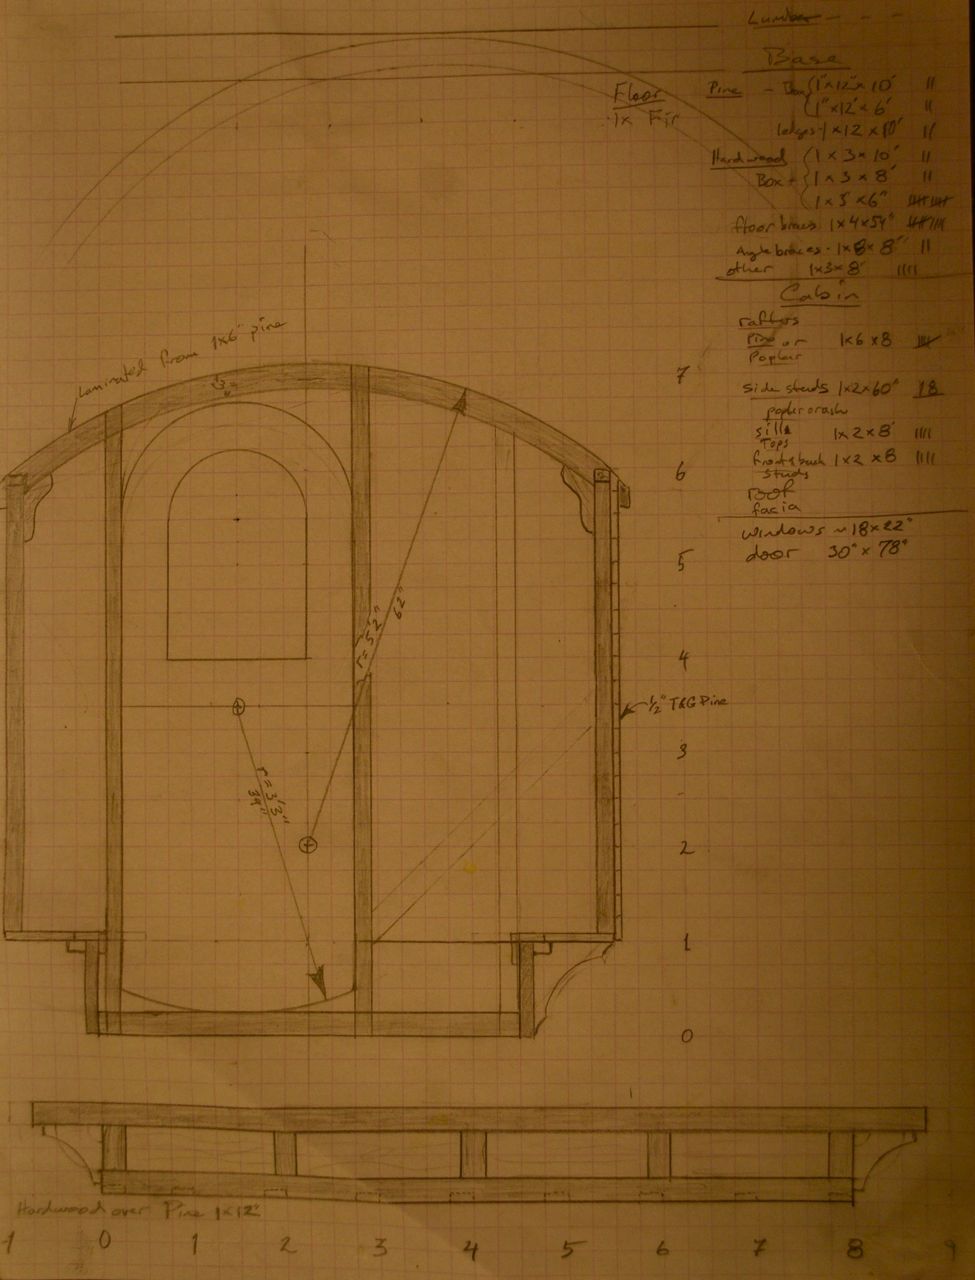 Lumber - - -
Base
Pine - Box 1"x12"x10' ||
1"x12"x6' ||
ledges - 1x12x10' ||
Hardwood 1x3x10' ||
Box - 1x3x8' ||
1x3x6"
floor braces 1x4x54"
Angle braces - 1x8x8" ||
other 1x3x8' ||||
Floor
1x Fir
Cabin
rafters
Pine or 1x6x8
Poplar
side studs 1x2x60" 18
poplar or ash
sills
Tops 1x2x8' ||||
front & back 1x2x8 ||||
studs
roof
facia
windows ~ 18x22"
door 30" x 78"
Laminated from 1x6" pine
3"
7
6
5
4
3
2
1
0
r=5'2"
62"
r=3'3"
39"
1/2" T&G Pine
Hardwood over Pine 1x12"
-1 0 1 2 3 4 5 6 7 8 9